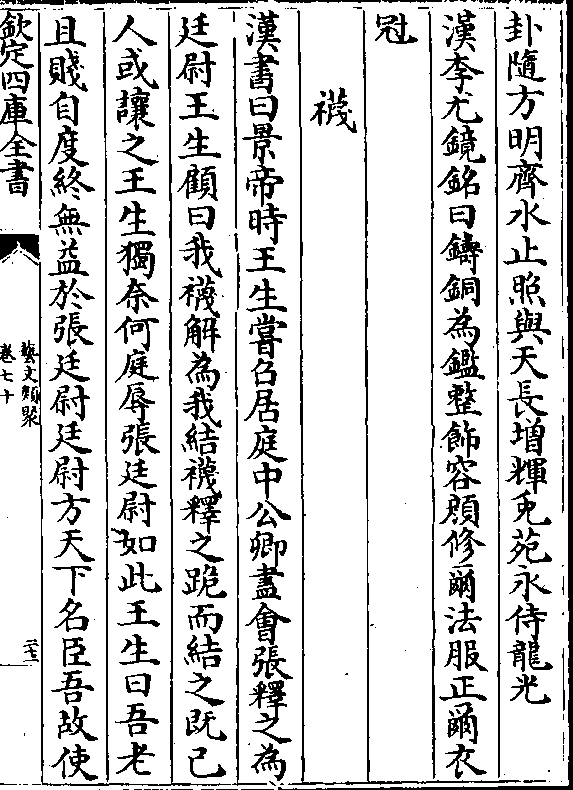 卦隨方明齊水止照與天長増輝兎苑永侍龍光
漢李尤鏡銘曰鑄銅為鑑整飾容顔修爾法服正爾衣
冠
襪
漢書曰景帝時王生嘗召居庭中公卿盡會張釋之為
廷尉王生顧曰我襪解為我結襪釋之跪而結之既已
人或讓之王生獨奈何庭辱張廷尉如此王生曰吾老
且賤自度終無益於張廷尉廷尉方天下名臣吾故使
欽定四庫全書
藝文類聚
卷七十